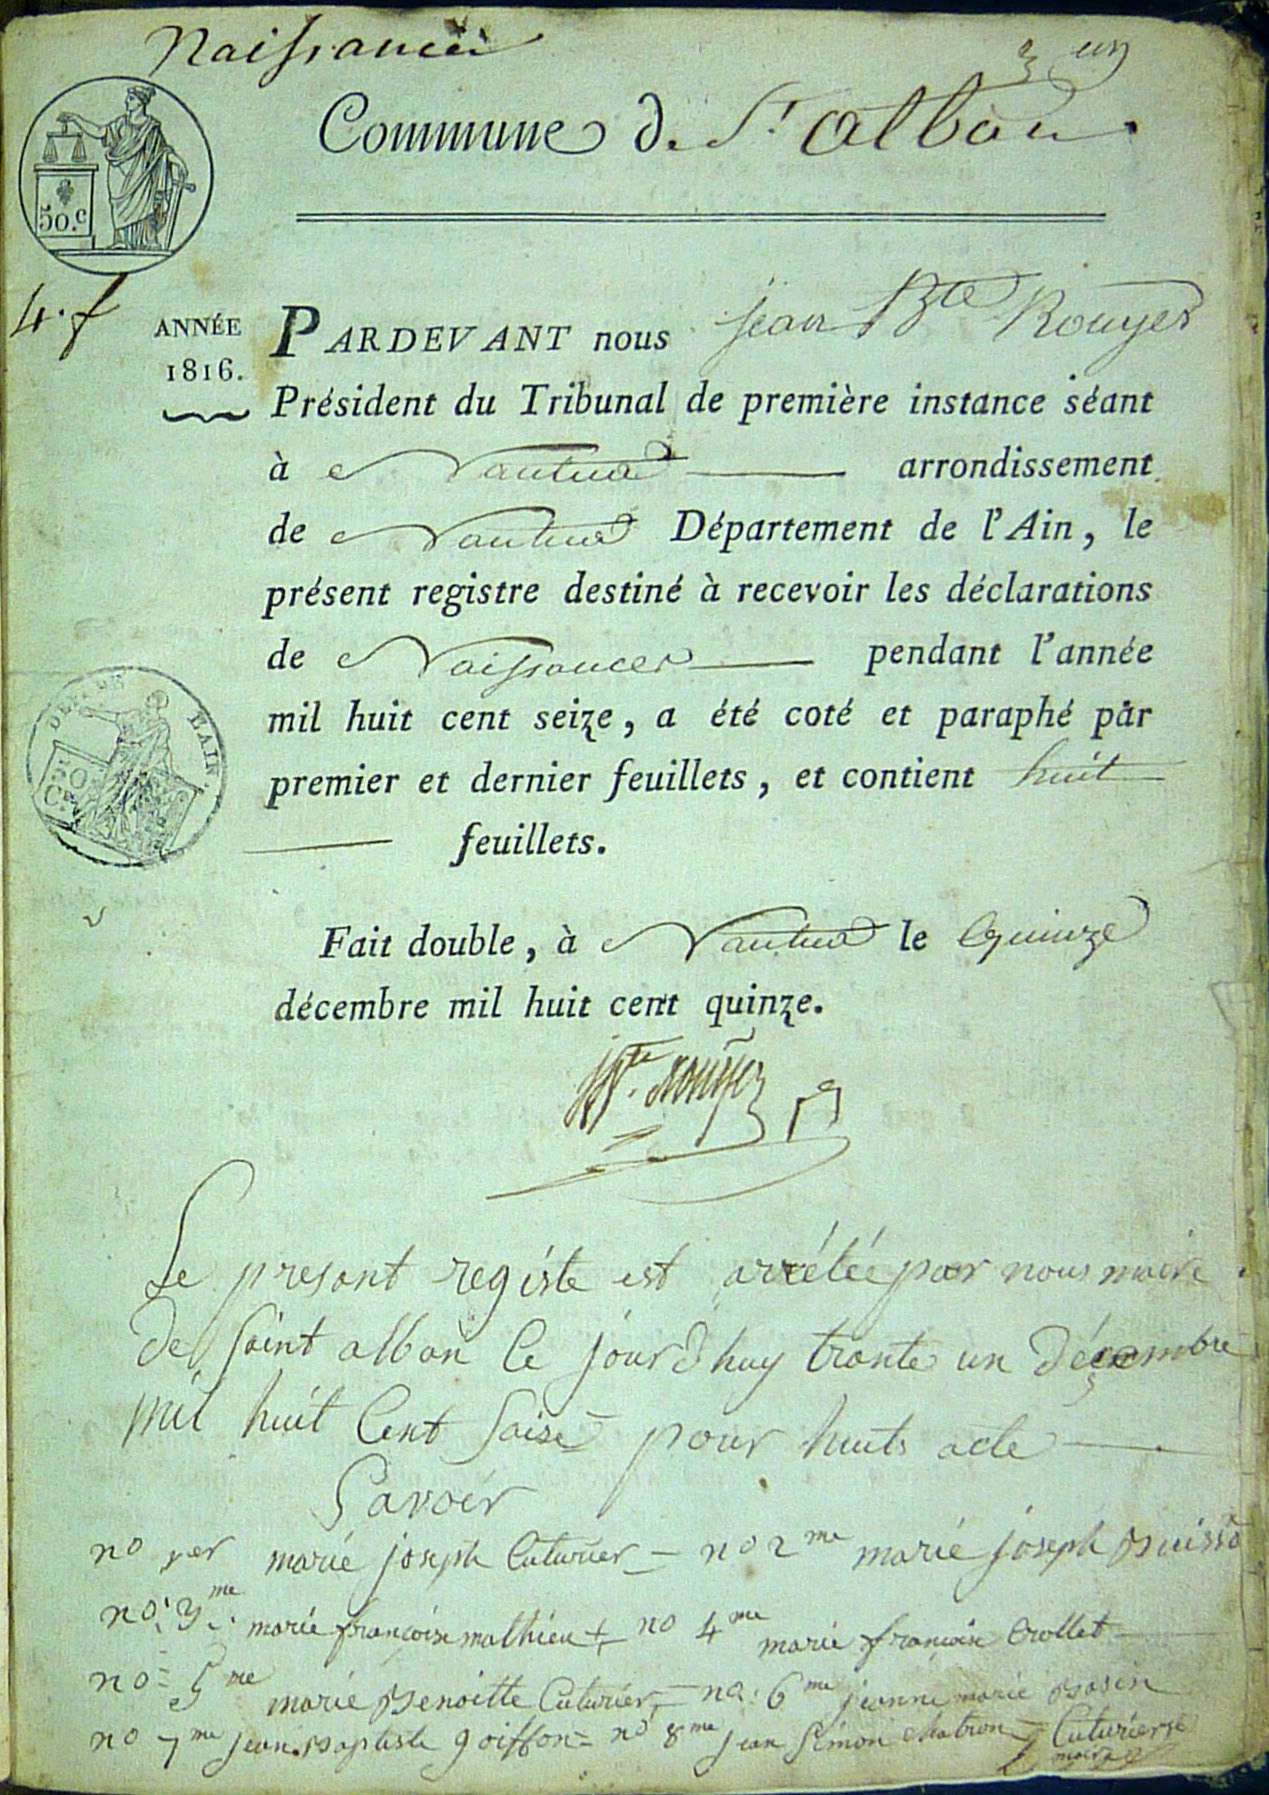 Naissances
un
Commune de St alban
50.c
4. f
ANNÉE
1816.
PARDEVANT nous jean Bte Rouyer
Président du Tribunal de première instance séant
à Nantua arrondissement
de Nantua Département de l'Ain, le
présent registre destiné à recevoir les déclarations
de Naissances pendant l'année
mil huit cent seize, a été coté et paraphé par
premier et dernier feuillets, et contient huit
feuillets.
L'AIN
50
Fait double, à Nantua le quinze
décembre mil huit cent quinze.
Bte. rouyer
Le presant registe est arrétée par nous maire
de saint alban ce jourdhuy trante un décembre
mil huit cent saise pour huits acte
Savoir
no 1er marie joseph Cuturier — no 2me marie joseph
no. 3me. marie françoise mathieu + no 4me marie françoise Crollet
no = 5me marie Benoitte Cuturier = no. 6me jeanne marie Basin
no 7me jean Baptiste goiffon = no 8me jean Simon Chatron — Cuturier
maire